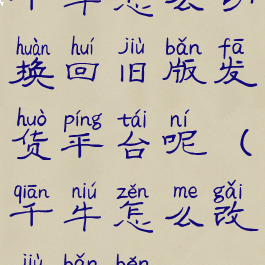 千牛怎么切
huàn huí jiù bǎn fā
换回旧版发
huò píng tái ní
货平台呢（
qiān niú zěn me gǎi
千牛怎么改
jiù bǎn běn